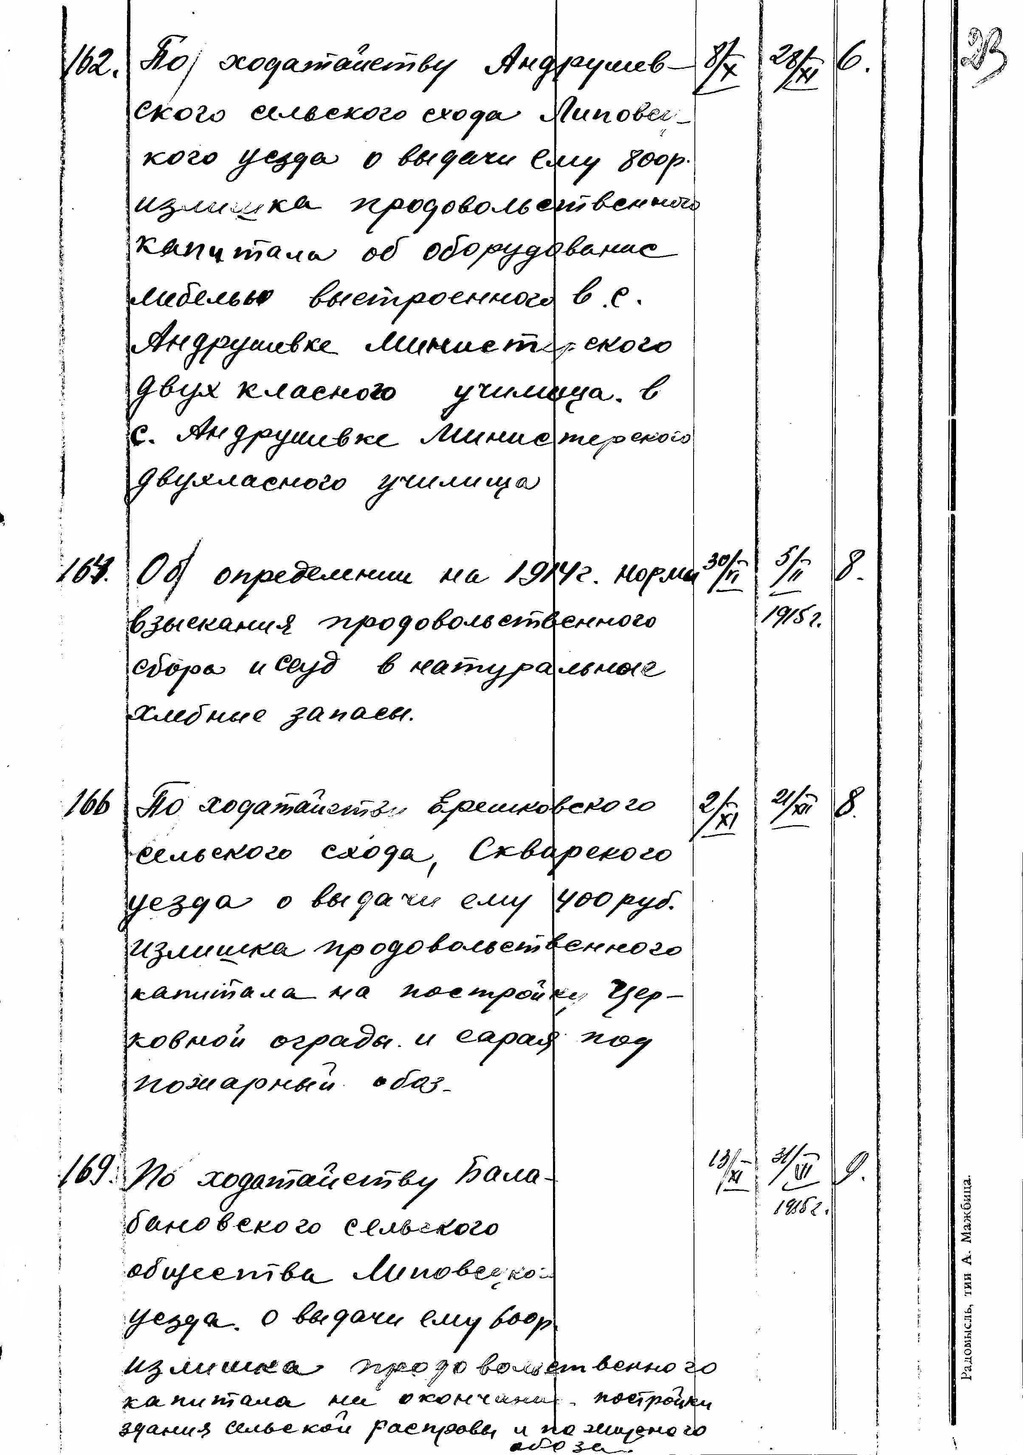 23
162. По ходатайству Андрушев- 8/X 28/XI 6.
ского сельского схода Липовец-
кого уезда о выдачи ему 800р.
излишка продовольственного
капитала об оборудование
мебелью выстроенного в с.
Андрушевке Министерского
двух класного училища. в
с. Андрушевке Министерского
двухласного училища
164. Об определении на 1914г. норми 30/VI 5/II 8.
взыскания продовольственного 1915г.
сбора и ссуд в натуральные
хлебние запасы.
166 По ходатайству Ерешковского 2/XI 21/XII 8.
сельского схода, Сквирского
уезда о выдачи ему 400 руб.
излишка продовольственного
капитала на постройку Цер-
ковной ограды. и сарая под
пожарный обоз-
169. По ходатайству Бала- 13/XI 31/VII 9.
бановского сельского 1915г.
общества Липовецко-
уезда. о выдачи ему 600р.
излишка продовольственного
капитала на окончание постройки
здания сельской расправы и пожарного
обоза
Радомысль, тип А. Мажбица.